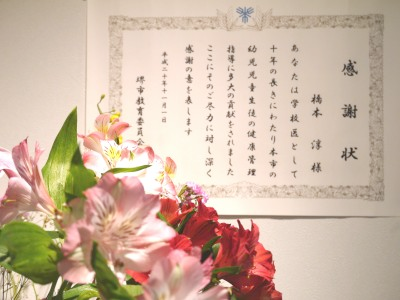 感謝状
橋本 淳 様
あなたは学校医として
十年の長きにわたり本市の
幼児児童生徒の健康管理
指導に多大の貢献をされました
ここにそのご尽力に対し深く
感謝の意を表します
平成二十年十一月一日
堺市教育委員会